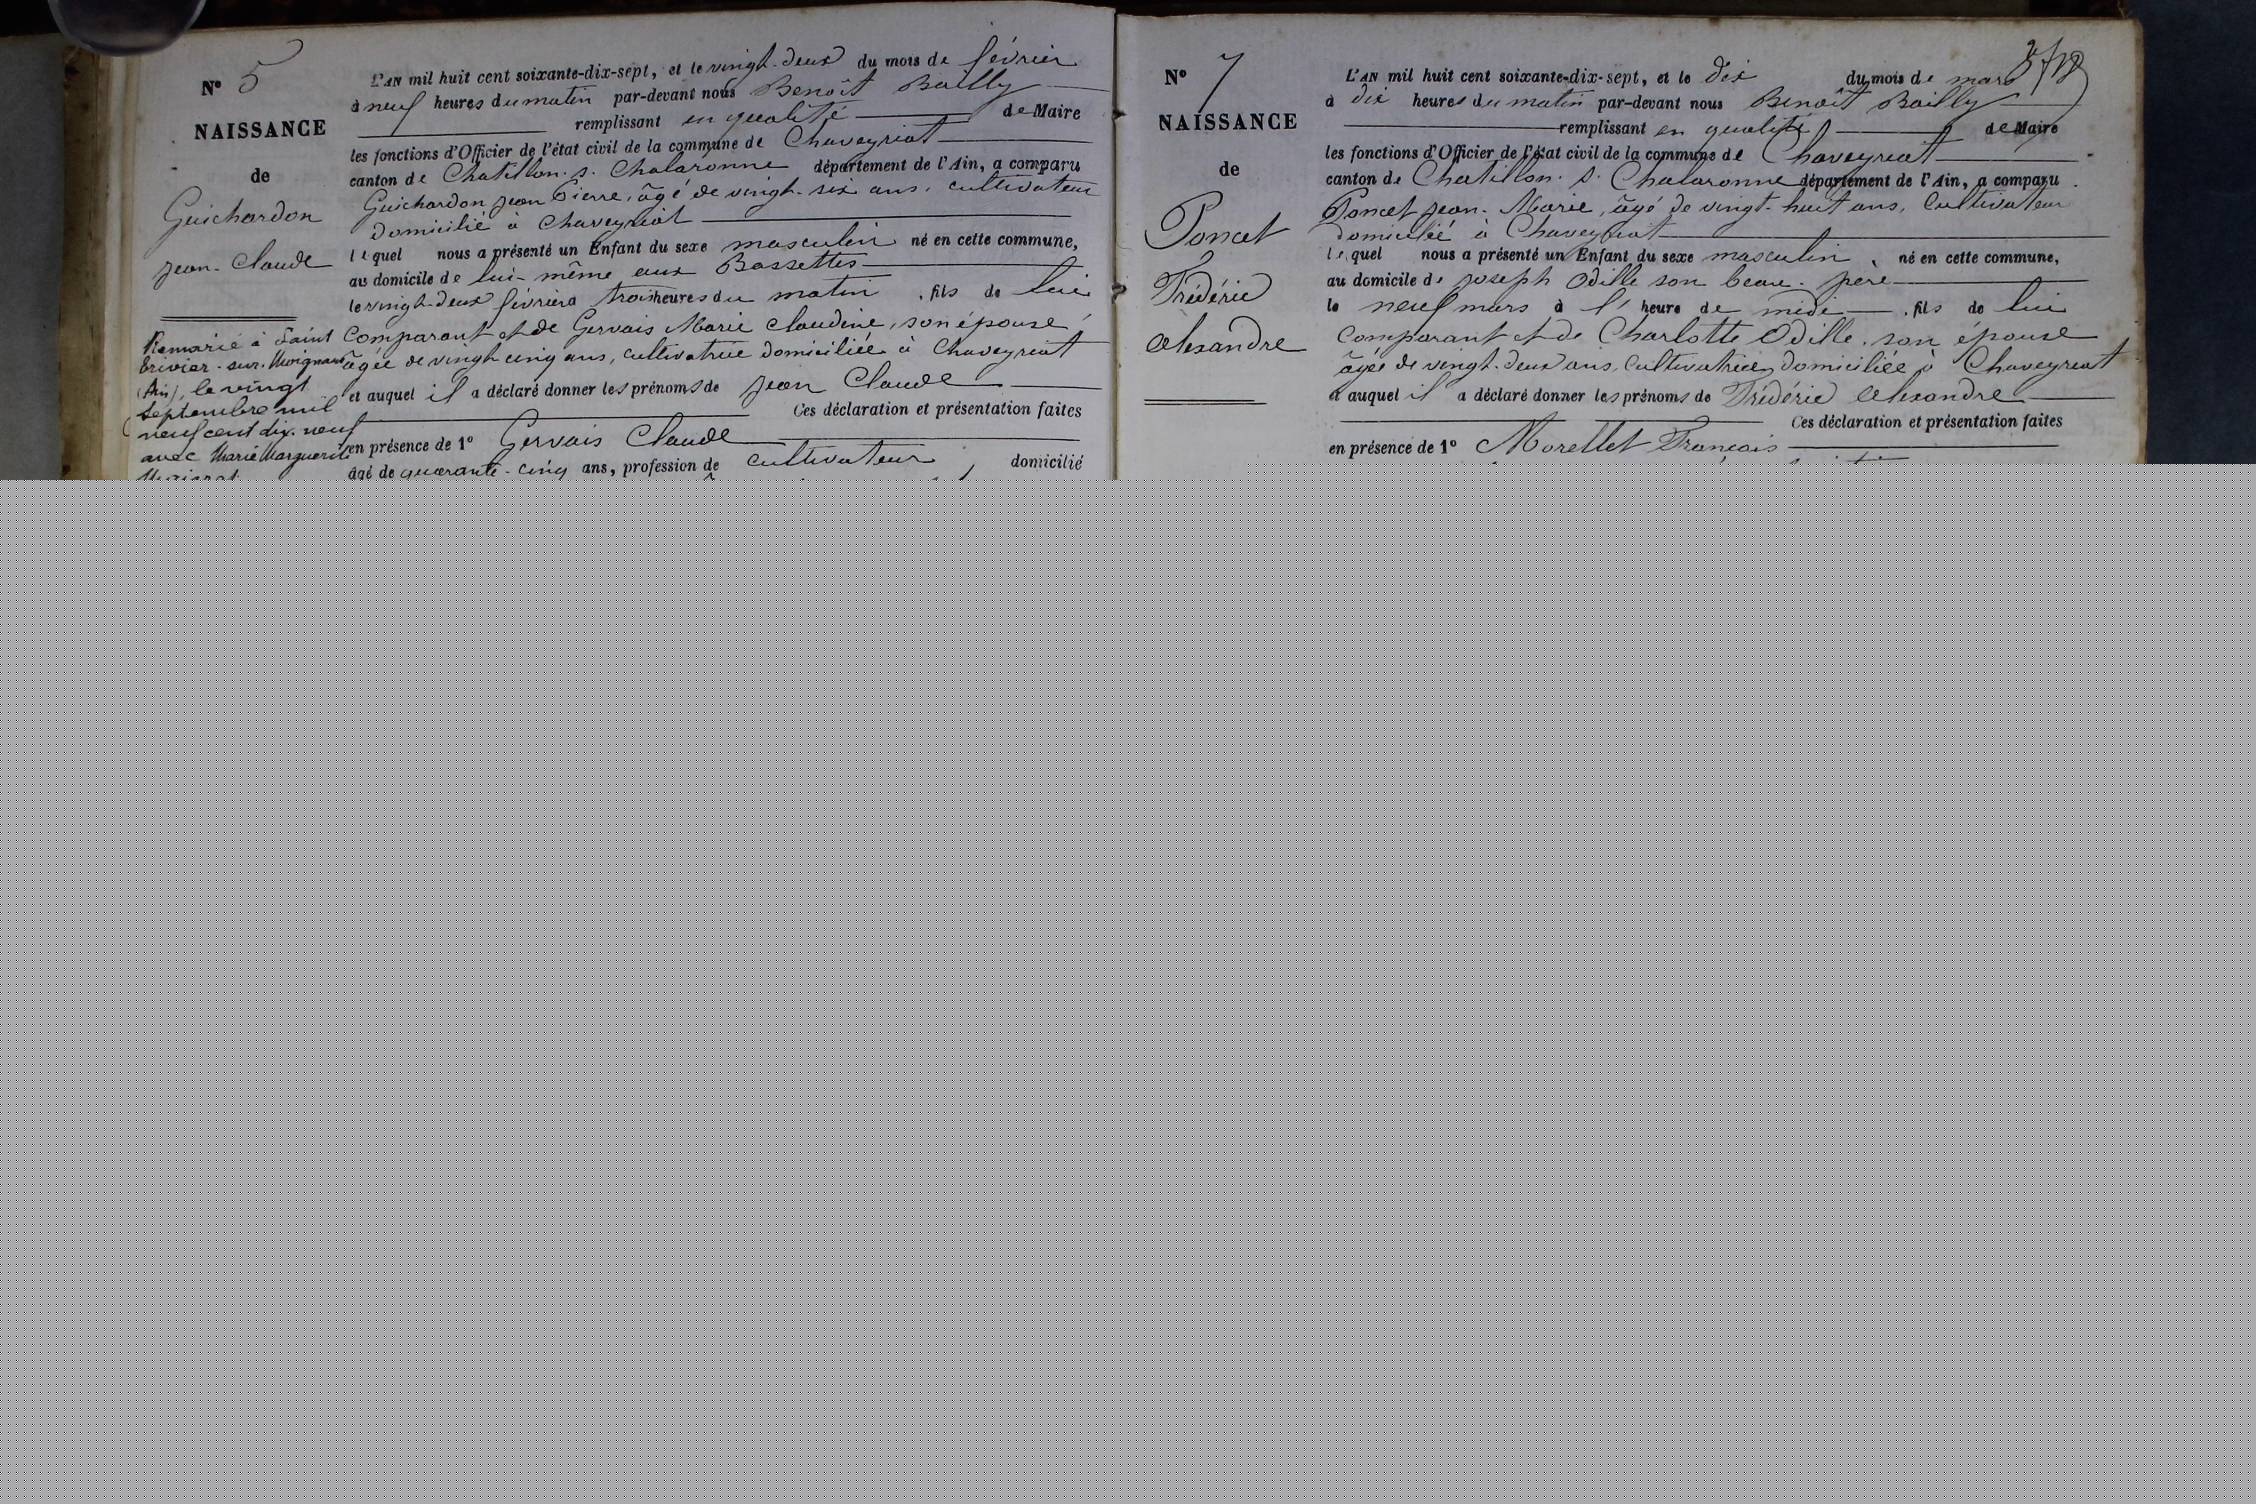 N° 5
NAISSANCE
de
Guichardon
Jean-Claude
Remarié à Saint
trivier-sur-Moignans
(Ain), le vingt
septembre mil
neuf cent dix-neuf
avec Marie Marguerite
L'AN mil huit cent soixante-dix-sept, et le vingt-deux du mois de février
à neuf heures du matin par-devant nous Benoît Bailly
remplissant en qualité de Maire
les fonctions d'Officier de l'état civil de la commune de Chaveyriat
canton de Chatillon-s-Chalaronne département de l'Ain, a comparu
Guichardon Jean Pierre, âgé de vingt-six ans, cultivateur
domicilié à Chaveyriat
lequel nous a présenté un Enfant du sexe masculin né en cette commune,
au domicile de lui-même aux Bassettes
le vingt-deux février à trois heures du matin, fils de lui
comparant et de Gervais Marie Claudine, son épouse,
âgée de vingt cinq ans, cultivatrice domiciliée à Chaveyriat
et auquel il a déclaré donner les prénoms de Jean Claude
Ces déclaration et présentation faites
en présence de 1° Gervais Claude
âgé de quarante-cinq ans, profession de cultivateur, domicilié
N° 7
NAISSANCE
de
Poncet
Frédéric
Alexandre
L'AN mil huit cent soixante-dix-sept, et le dix du mois de mars
à dix heures du matin par-devant nous Benoît Bailly
remplissant en qualité de Maire
les fonctions d'Officier de l'état civil de la commune de Chaveyriat
canton de Chatillon-s-Chalaronne département de l'Ain, a comparu
Poncet Jean-Marie, âgé de vingt-huit ans, cultivateur
domicilié à Chaveyriat
lequel nous a présenté un Enfant du sexe masculin, né en cette commune,
au domicile de Joseph Odille son beau-père
le neuf mars à l'heure de midi, fils de lui
comparant et de Charlotte Odille, son épouse
âgée de vingt-deux ans, cultivatrice, domiciliée à Chaveyriat
et auquel il a déclaré donner les prénoms de Frédéric Alexandre
Ces déclaration et présentation faites
en présence de 1° Morellet François